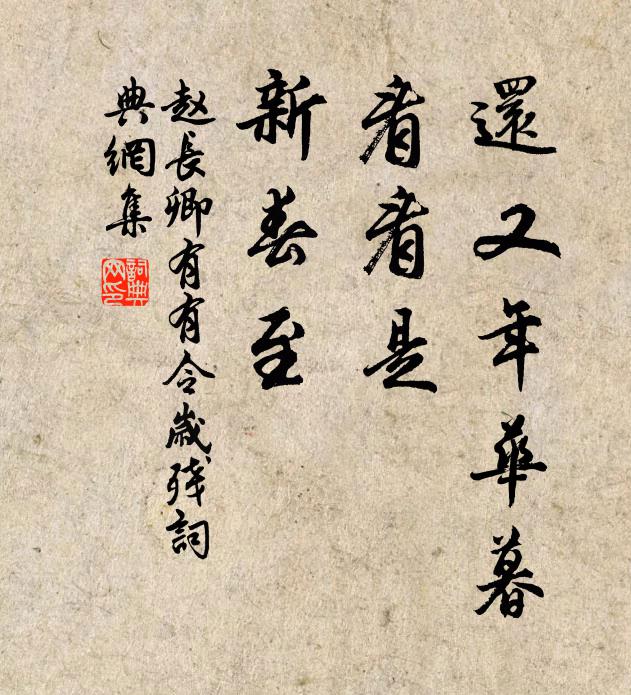 還又年華暮
看看是
新春至
赵長卿有有令歲殘詞
典網集
詞典
网印